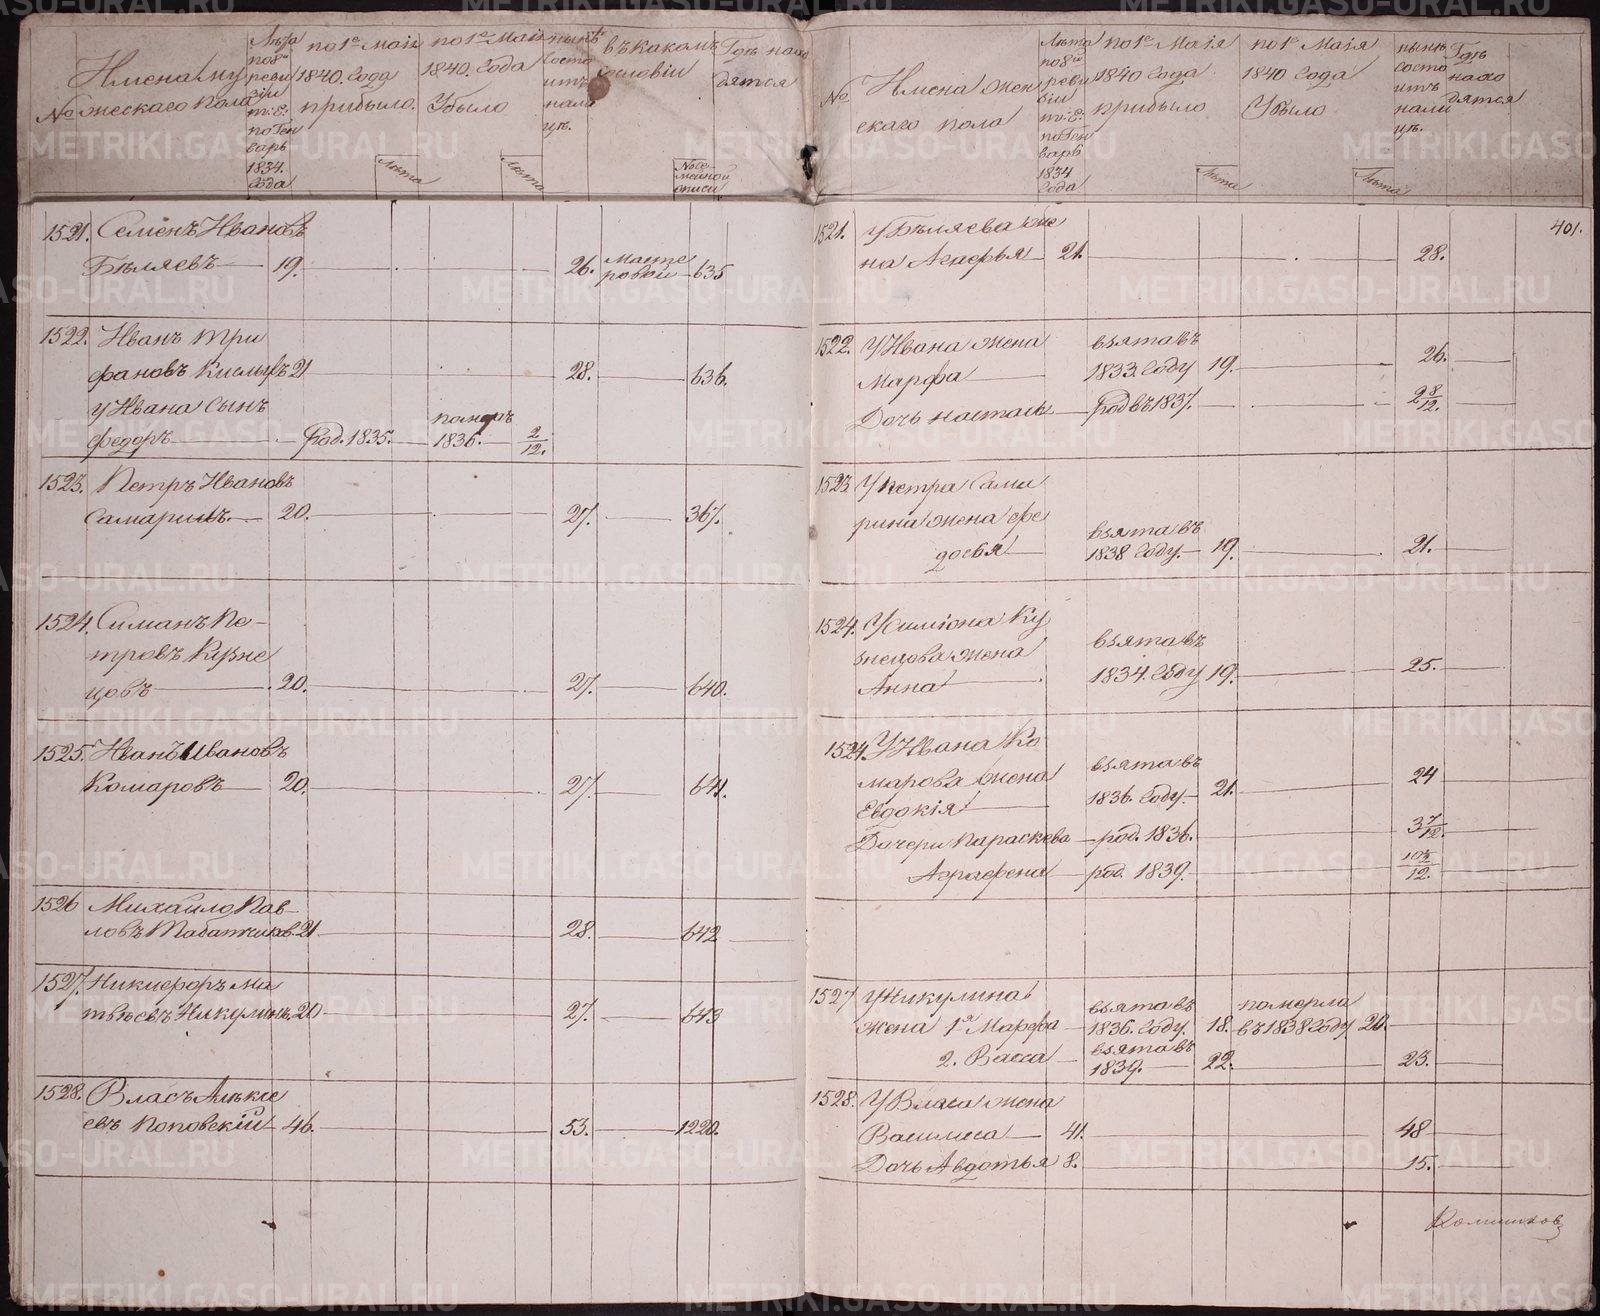 №
Имена му
жескаго пола
Лѣта
по 8й
реви
зіи
т: е:
по Ген
варь
1834.
Года
по 1е Маія
1840. Года
прибыло.
Лѣта
по 1е Маія
1840. Года
Убыло
Лѣта
нынѣ
состо
итъ
нали
цѣ.
въ какомъ
сословіи
№ се-
мейной
описи
Гдѣ нахо
дятся
1521. Семенъ Ивановъ
Бѣляевъ 19. 26. Масте
ровой 635
1522. Иванъ Три
фановъ Кислыхъ 21 28. 636.
У Ивана Сынъ
Федоръ Род. 1835. померъ
1836. 2/12.
1523. Петръ Ивановъ
Самаринъ. 20. 27. 367.
1524. Симанъ Пе-
тровъ Кузне
цовъ 20. 27. 640.
1525. Иванъ Ивановъ
Комаровъ 20. 27. 641.
1526 Михайло Пав-
ловъ 21 28. 642
1527. Никифоръ Ма
твѣевъ Никулинъ. 20 27. 643
1528. Власъ Алѣксе
евъ Поповскій 46. 53. 1220.
№
Имена жен
скаго пола
Лѣта
по 8й
реви
зіи
т: е:
по Ген
варь
1834
Года
по 1е Маія
1840 Года
прибыло
Лѣта
по 1е Маія
1840 Года
Убыло
Лѣта
нынѣ
состо
итъ
нали
цѣ.
Гдѣ
нахо
дятся
401.
1521. У Бѣляева же
на Агафья 21. 28.
1522. У Ивана жена взята въ
Марфа 1833. Году 19. 26.
Дочь Настась Род въ 1837. 2 8/12.
1523 У Петра Сама
рина жена Фе взята въ
досья 1838 Году. 19. 21.
1524. У Симіона Ку
знецова жена взята въ
Анна 1834. Году 19. 25.
1524. У Ивана Ко
марова жена взята въ
Евдокія 1836. Году. 21. 24
Дочери Параскева род. 1836. 3 7/12.
Аграфена род. 1839. 10½/12.
1527 У Никулина взята въ померла
жена 1я Марфа 1836. Году. 18. въ 1838 Году 20.
2. Васса взята въ
1839. 22. 23.
1528. У Власа жена
Василиса 41. 48
Дочь Авдотья 8. 15.
METRIKI.GASO-URAL.RU